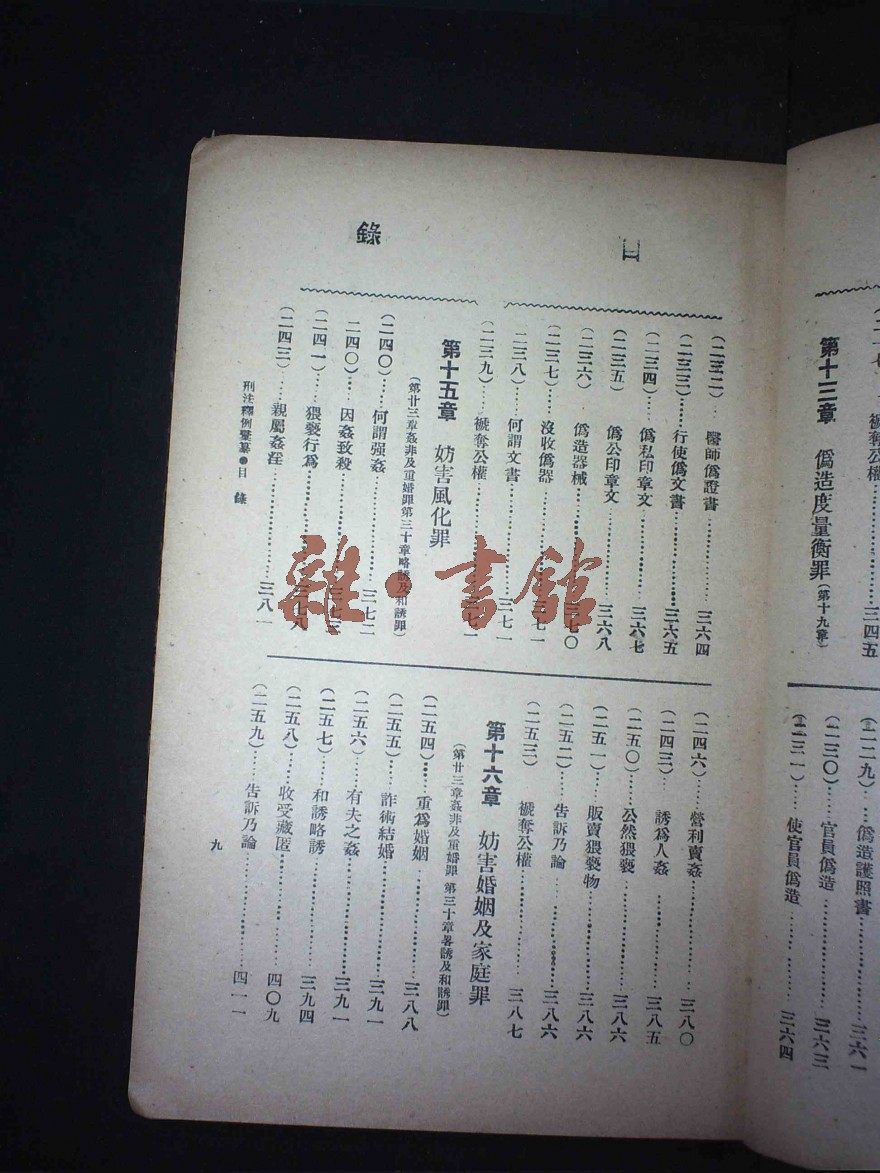 第十三章 偽造度量衡罪（第十九章）
褫奪公權……三四五
（二二九）……偽造護照書……三六一
（二三〇）……官員偽造……三六三
（二三一）……使官員偽造……三六四
目錄
（二三二）……醫師偽證書……三六四
（二三三）……行使偽文書……三六五
（二三四）……偽私印章文……三六七
（二三五）……偽公印章文……三六八
（二三六）……偽造器械……三七〇
（二三七）……沒收偽器……三七一
（二三八）……何謂文書……三七一
（二三九）……褫奪公權……三七一
第十五章 妨害風化罪
（第廿三章姦非及重婚罪第三十章略誘及和誘罪）
（二四〇）……何謂强姦……三七二
二四〇）……因姦致殺……三七三
（二四一）……猥褻行爲……三七八
（二四三）……親屬姦淫……三八一
（二四六）……營利賣姦……三八〇
（二四三）……誘爲人姦……三八五
（二五〇）……公然猥褻……三八六
（二五一）……販賣猥褻物……三八六
（二五二）……告訴乃論……三八六
（二五三）……褫奪公權……三八七
第十六章 妨害婚姻及家庭罪
（第廿三章姦非及重婚罪 第三十章畧誘及和誘罪）
（二五四）……重爲婚姻……三八八
（二五五）……詐術結婚……三九一
（二五六）……有夫之姦……三九一
（二五七）……和誘略誘……三九四
（二五八）……收受藏匿……四〇九
（二五九）……告訴乃論……四一一
刑法釋例彙纂●目錄
九
雜·書館